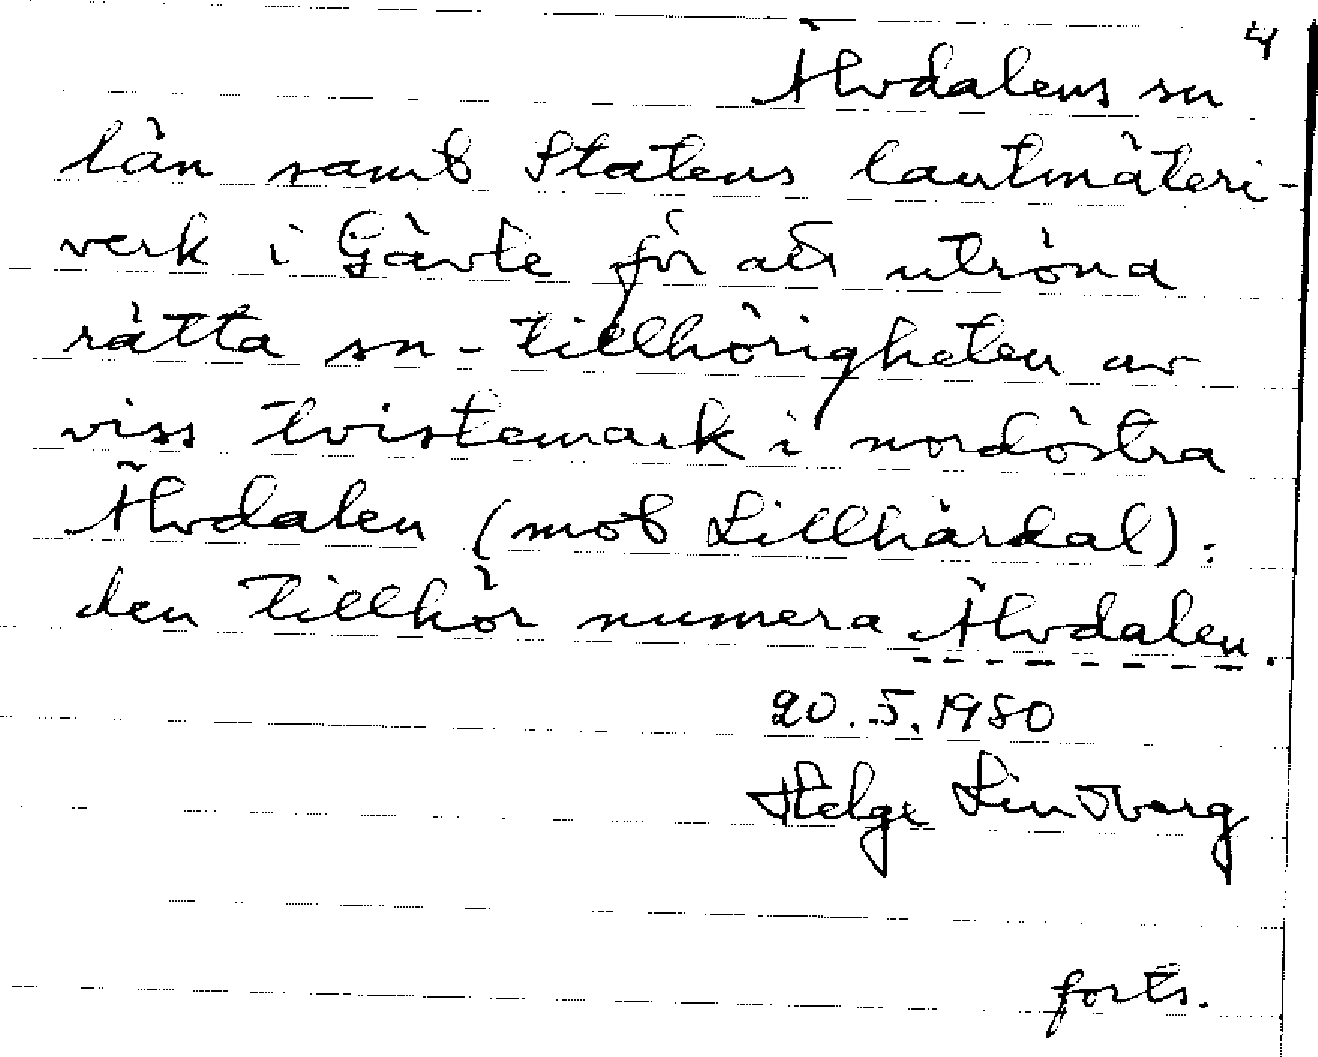 4
Älvdalens sn
län samt Statens lantmäteri-
verk i Gävle för att utröna
rätta sn-tillhörigheten av
viss tvistemark i nordöstra
Älvdalen (mot Lillhärdal):
den tillhör numera Älvdalen.
20.5.1980
Helge Lindberg
forts.